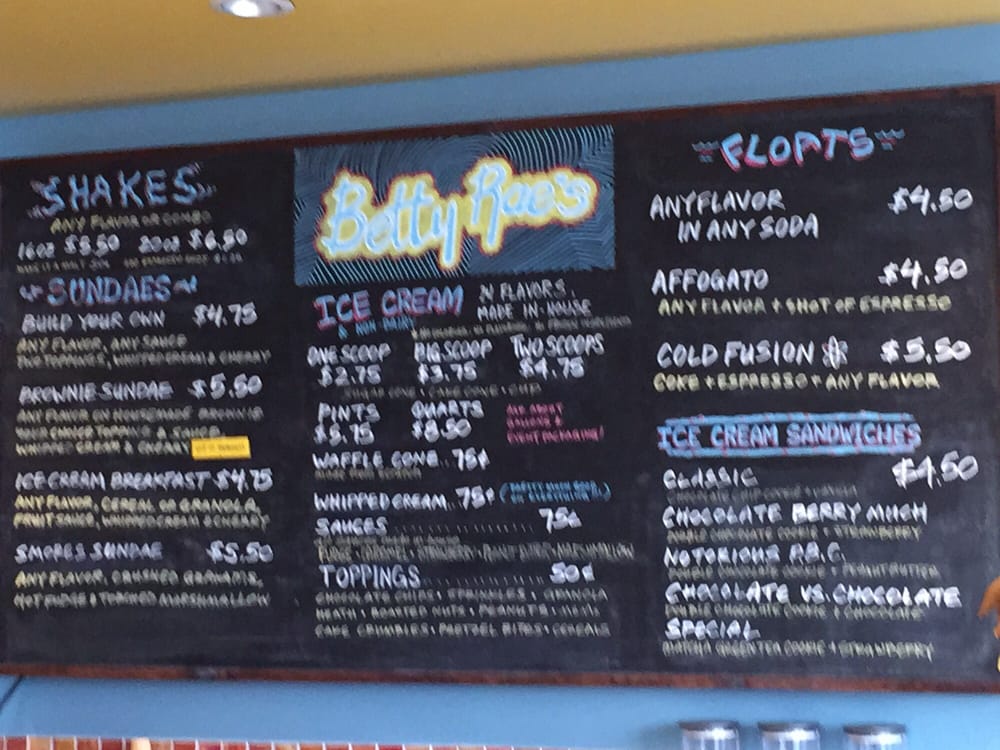 SHAKES
ANY FLAVOR OR COMBO
16oz $5.50 20oz $6.50
SUNDAES
BUILD YOUR OWN $4.75
ANY FLAVOR, ANY SAUCE
TWO TOPPINGS, WHIPPED CREAM & CHERRY
BROWNIE SUNDAE $5.50
ANY FLAVOR ON HOUSEMADE BROWNIE
WHIPPED CREAM & CHERRY
ICE CREAM BREAKFAST $4.75
ANY FLAVOR, CEREAL OR GRANOLA,
FRUIT SAUCE, WHIPPED CREAM & CHERRY
SMORES SUNDAE $5.50
ANY FLAVOR, CRUSHED GRAHAMS,
HOT FUDGE & TORCHED MARSHMALLOW
Betty Rae's
ICE CREAM
& NON-DAIRY
FLAVORS
MADE IN-HOUSE
ONE SCOOP BIG SCOOP TWO SCOOPS
$2.75 $3.75 $4.75
SUGAR CONE • CAKE CONE • CUP
PINTS QUARTS
$5.75 $8.50
ASK ABOUT
EVENT PACKAGING!
WAFFLE CONE.. 75¢
WHIPPED CREAM.. 75¢
SAUCES .................. 75¢
TOPPINGS ............. 50¢
CHOCOLATE CHIPS • SPRINKLES • GRANOLA
HEATH • ROASTED NUTS • PEANUTS •
CAKE CRUMBLES • PRETZEL BITES • CEREALS
FLOATS
ANY FLAVOR $4.50
IN ANY SODA
AFFOGATO $4.50
ANY FLAVOR + SHOT OF ESPRESSO
COLD FUSION $5.50
COKE + ESPRESSO + ANY FLAVOR
ICE CREAM SANDWICHES
CLASSIC $4.50
CHOCOLATE CHIP COOKIE + VANILLA
CHOCOLATE BERRY MUCH
DOUBLE CHOCOLATE COOKIE + STRAWBERRY
NOTORIOUS P.B.C.
DOUBLE CHOCOLATE COOKIE + PEANUT BUTTER
CHOCOLATE VS. CHOCOLATE
DOUBLE CHOCOLATE COOKIE + CHOCOLATE
SPECIAL
MATCHA GREEN TEA COOKIE + STRAWBERRY